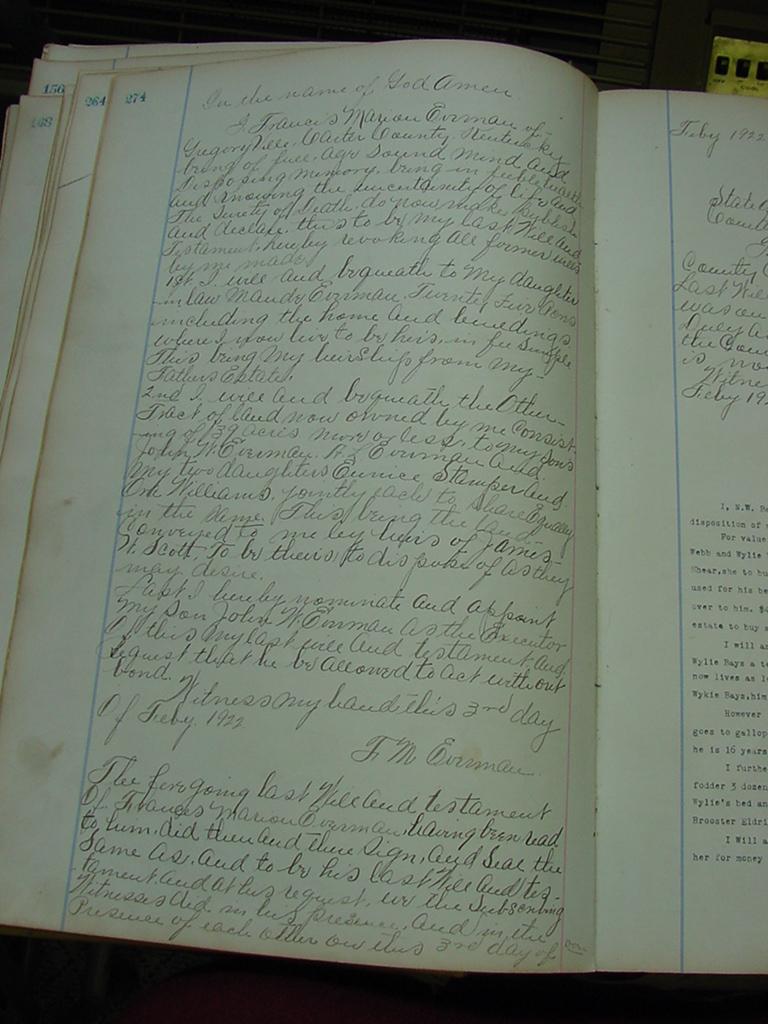 156
264
274
In the name of God Amen
I Francis Marion Everman of
Gregoryville, Carter County, Kentucky
being of full age sound mind and
Disposing memory, being in feeble health
and knowing the uncertainty of life and
The Surety of Death, do now make publish
and declare this to be my last Will and
Testament, hereby revoking all former wills
by me made
1st I will and bequeath to My daughter
in law Maude Everman, Twenty Five acres
including the home and buildings
where I now live to be hers, in fee Simple
This being My heirship from my
Fathers Estate.
2nd I will and bequeath the Other
Tract of land now owned by me Consist-
ing of 39 acres more or less, to my sons
John W. Everman, Everman and
My two daughters Eunice Stamper and
Williams, jointly each to share Equally
in the Same. This being the land
Conveyed to me by heirs of James
W. Scott. To be theirs to dispose of as they
may desire.
Last I hereby nominate and appoint
My Son John W. Everman as the Executor
Of this my last will and testament and
Request that he be allowed to act without
bond.
Witness my hand this 3rd day
Of Feby. 1922
F. M Everman
The foregoing last Will and testament
Of Frances Marion Everman, having been read
to him, did then and there Sign, and Seal the
Same as, and to be his last Will and tes-
tament. and at his request, we the Subscribing
Witnesses did in his presence and in the
Presence of each other on this 3rd day of
Feby 1922
State
County
Last Will
was on
Duly a
the Coun
is
Witne
Feby 19
I, N.W. Be
disposition of
For value
Webb and Wylie
Shear, she to bu
used for his be
over to him. $
estate to buy
I will a
Wylie Bays a t
now lives as l
Wykie Bays, him
However
goes to gallop
he is 16 years
I furthe
fodder 3 dozen
Wylie's bed an
Brooster Eldri
I Will a
her for money